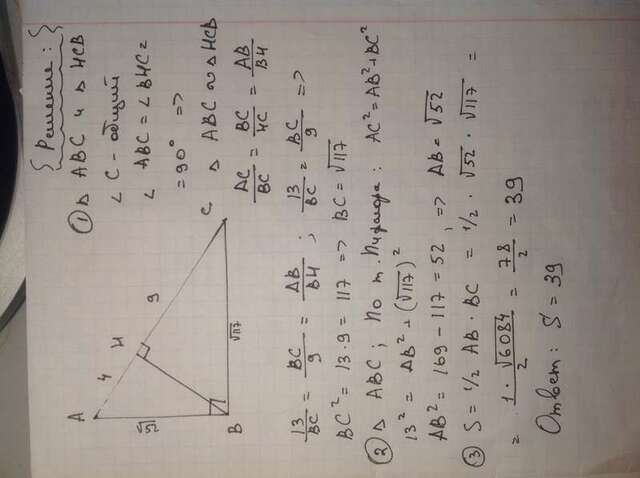 Решение:
① △ ABC и △ HCB
∠ C - общий
∠ ABC = ∠ BHC =
= 90° =>
△ ABC ∾ △ HCB
AC/BC = BC/HC = AB/BH
A
4
H
9
C
√52
B
√117
13/BC = BC/9 = AB/BH ; 13/BC = BC/9 =>
BC² = 13 · 9 = 117 => BC = √117
② △ ABC ; По т. Пифагора : AC² = AB² + BC²
13² = AB² + (√117)²
AB² = 169 - 117 = 52 , => AB = √52
③ S = 1/2 AB · BC = 1/2 · √52 · √117 =
= 1 · √6084/2 = 78/2 = 39
Ответ : S = 39